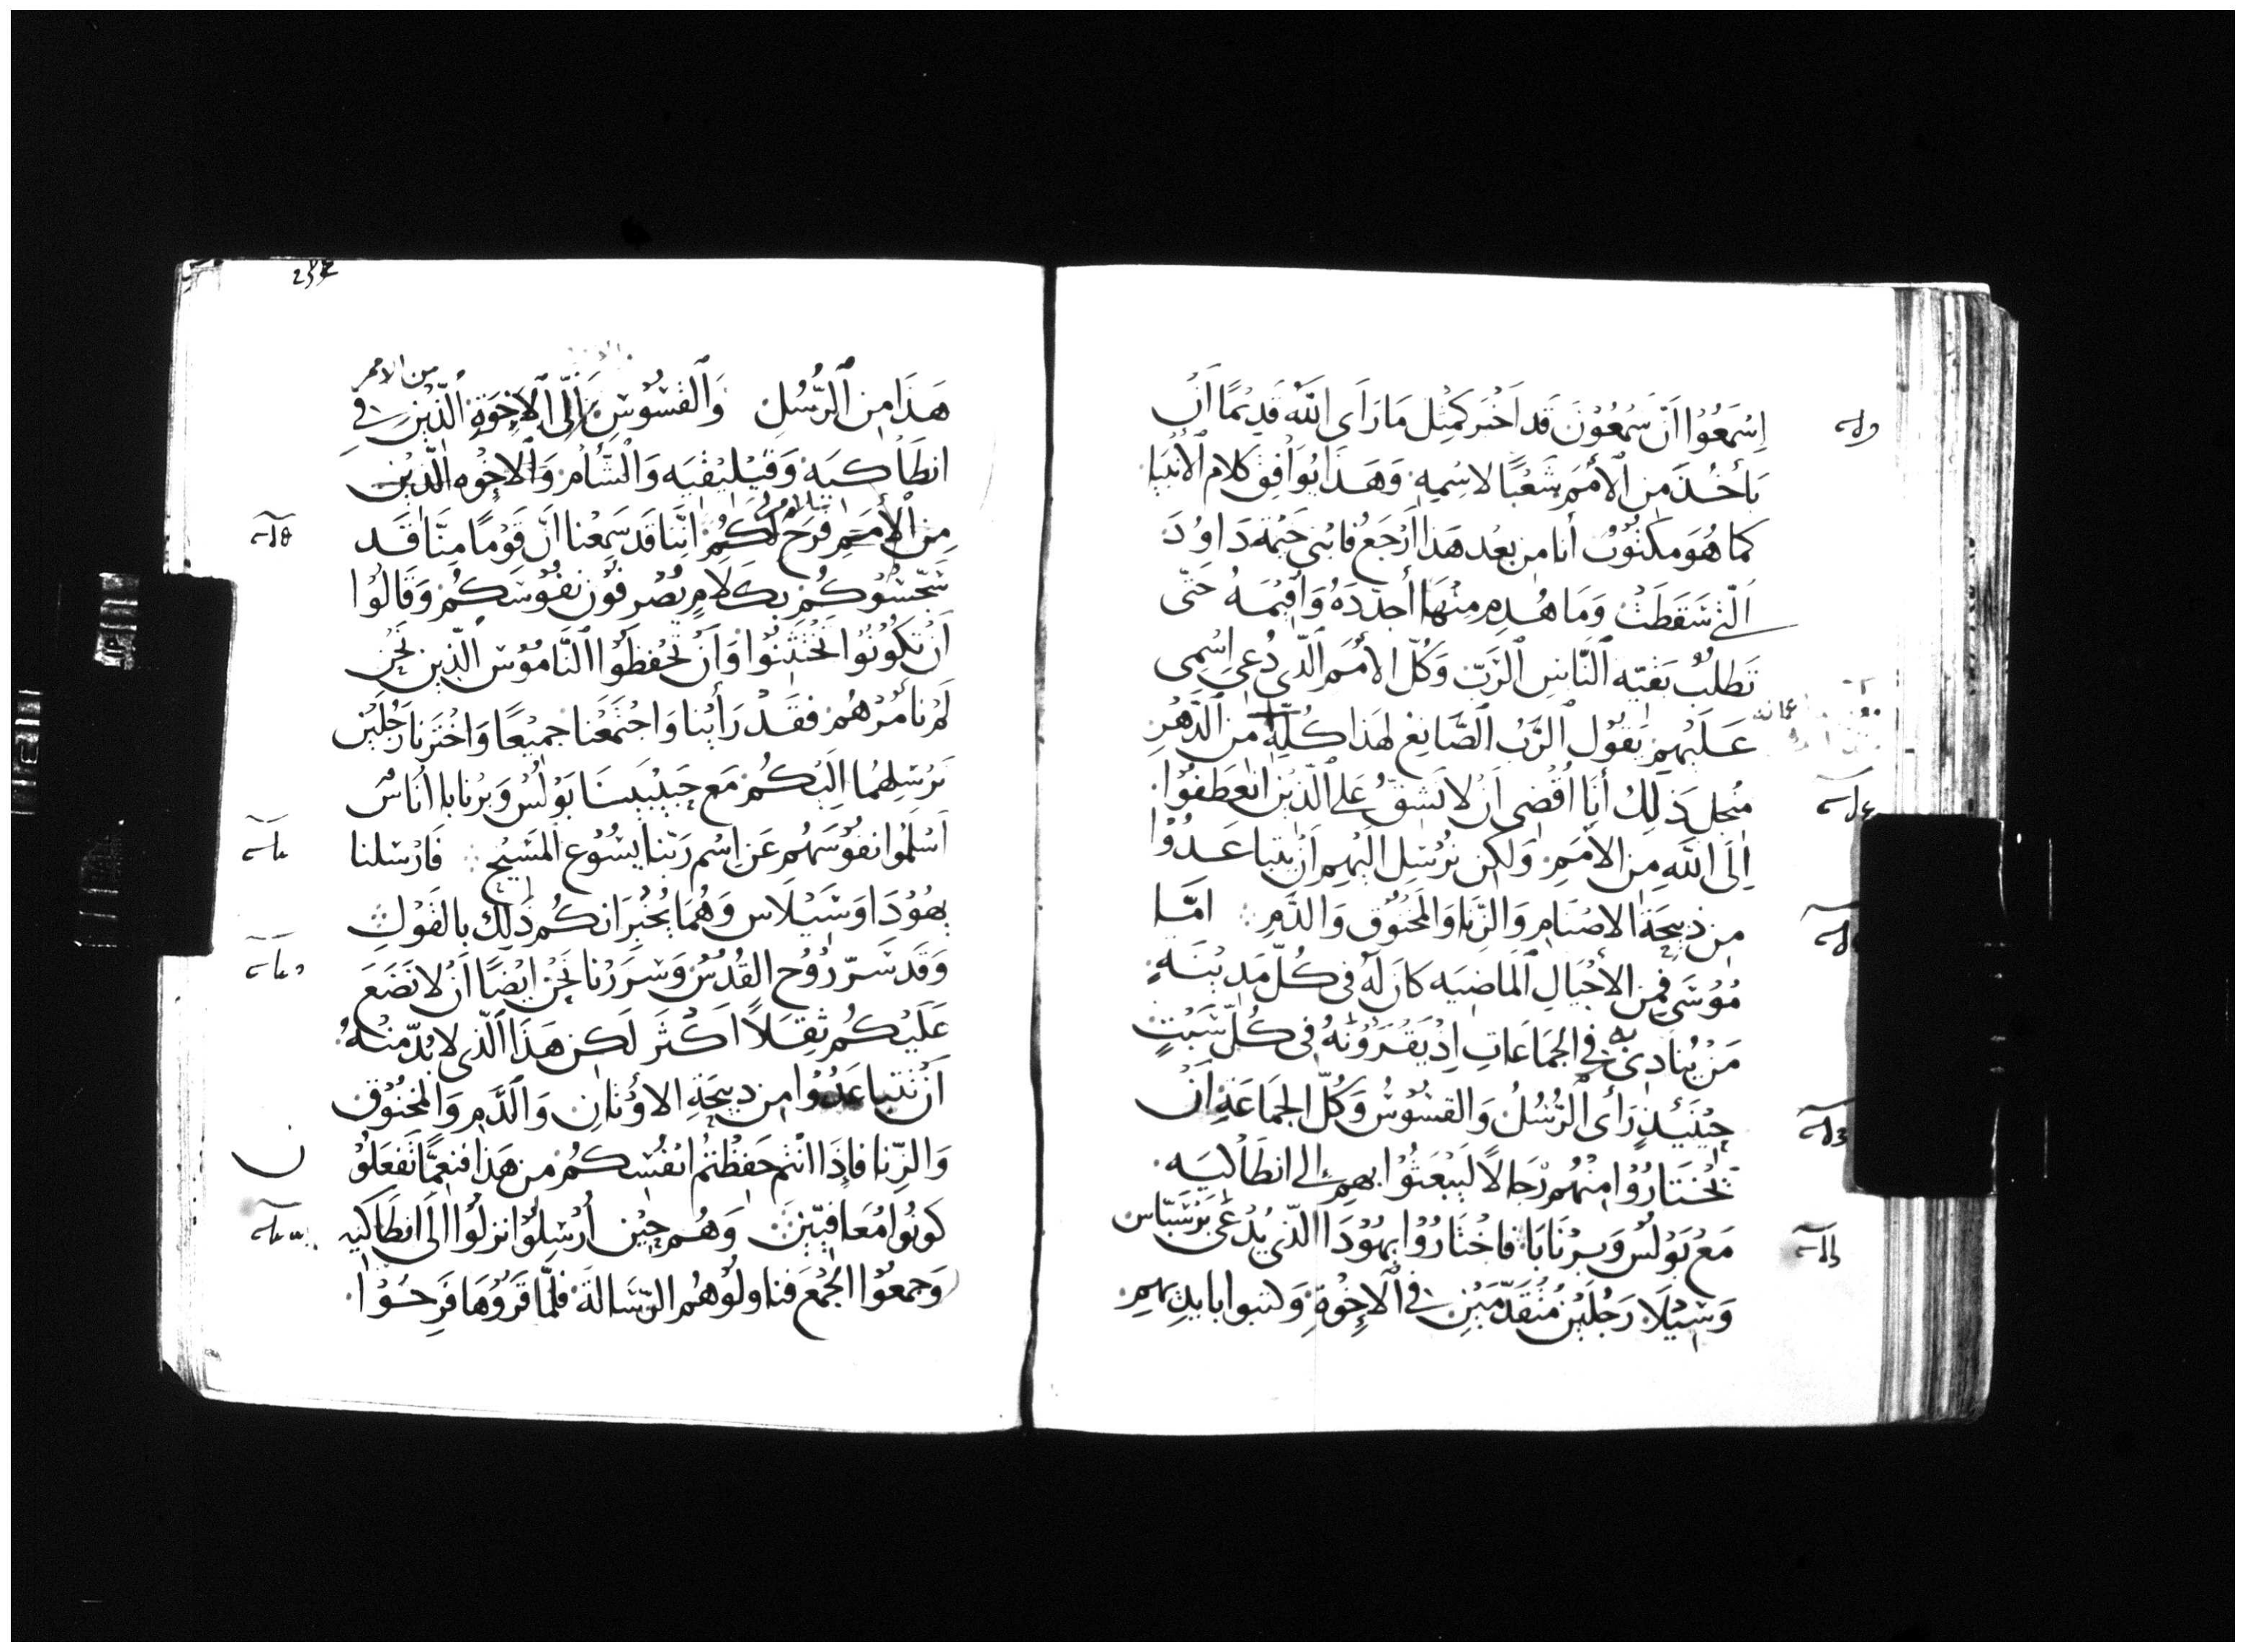 اِسْمَعُوْا اَنَّ سَمْعُوْنَ قَد اَخْبَر كَمِثِل مَا رَاَى اللَّه قَدِيْمًا اَنْ
يَأخُذَ مِنَ الأُمَم شَعْبًا لاسْمِهِ وَهَذَا يُوَافِق كَلام الأنْبِيَا
كما هُوَ مَكتُوْبٌ أنا مِن بعْد هَذا اَرْجَعُ فابْنِي خَيْمَة دَاوُدَ
الَّتي سَقَطَتْ وَمَا هُدِمِ مِنْهَا أجَدّدَهُ وَأقِيْمَهُ حَتَّى
تَطلُبُ بَقيّه النَّاسِ الرَّبّ وَكُلّ الأُمَم الّذي دُعِي اِسْمِي
عَلَيْهِم يَقُوْل الرَّبُ الصَّانِعُ لِهَذا كُلّهِ مِنَ الدَّهْرِ
مِنْجل ذَلِكَ أنَا اَقْضِي اَنْ لا نَشُقُّ عَلى الّذيْن انْعَطفُوْا
اِلَى اللَّه مِن الأمَمِ وَلكِن نُرْسِل الَيْهِم اَنْ يتَباعَدُوْا
مِن ذبِيحَة الاصْنَامِ وَالزِّنَا وَالمَخنُوْق وَالدَّمِ امَّا
مُوْسَى فمِن الأجْيَالِ المَاضِيَه كَانَ لَهُ فى كُلّ مَدِيْنَةٍ
مَنْ يُنَادِى بِه فِي الجَمَاعَاتِ اِذْ يَقْرَوُنَهُ فى كُلّ سَبْتٍ
حِيْنَيْذٍ رَأى الرُّسُلُ وَالقسُوْسُ وَكُلّ الجَمَاعَةِ اَنْ
يَخْتَارُوْا مِنْهُم رّجَالاً لَيَبْعَثُوْا بهم الى انطَاكيَه
مَعْ بَوْلُس وَبرْنَابَا فاخْتَارُوْا يَهُوْدَا الّذي يُدْعَى بَرْسَبّاس
وَسِيْلَا رَجُلَيْن مُتَقَدّمَيْنِ في الاِخْوَةِ وَكتبوا بايدِيْهِمِ
هَذَا مِن الرُّسُلِ وَالقسُوْسِ اِلَى الاِخْوَةِ الّذيْن في
من الامم
انطَاكيَة وَقيْليْقيَه وَالشَّام وَالاخْوَه الّذِيْن
مِن الأُمَم فَرَح لَكُم اِنّنَا قَد سَمِعْنا اَنّ قَوْمًا مِنَّا قَد
سَجّسُوْكُم بِكَلامٍ يُصْرِفوْن نفُوْسَكُم وَقَالُوْا
اَنْ تكُوْنُوْا تَخْتَتنُوْا وَاَنْ تَحْفظُوْا النَّامُوْس الّذين نَحْن
لَمْ نأمُرْهُم فقَدْ رَأيْنا وَاجْتَمَعْنا جمِيْعًا وَاخْتَرْنا رَجُلَيْن
نَرْسِلهُمَا اِلَيْكُم مَع حَبِيْبَيْنَا بَوْلُس وَبرْنابا اُنَاسٌ
اَسْلَمُوا نفوْسَهُم عَن اسْم رَبّنا يَسُوْع المَسِيْح فَارْسَلنا
يهُوْدَا وَسَيْلاس وَهُمَا يُخْبِرَانكُم ذَلِكَ بالقَوْلِ
وَقَد سَرّ رُوْح القُدُس وَسرَرْنا نَحْن ايْضًا اَنْ لا نَضَعَ
عَلَيْكُم ثِقَلاً اَكْثَر لَكن هَذا الّذى لا بُدّ مْنهُ
اَنْ تَتَباعَدُوْا مِن ذبِيحَةِ الاوْثانِ وَالدَّمِ وَالمَخنُوْق
وَالزِّنا فاِذَا انْتُم حَفظْتمُ انْفُسكُم مِن هَذَا فنِعِمَّا تَفعَلُوْا
كَوْنُوْا مُعَافيّيْنَ وَهُم حِيْن اُرْسِلُوْا نزلُوْا الَى انطَاكيه
وَجمعُوْا الجَمْعَ فناولُوْهُم الرّسَالَة فلمّا قَرَوْهَا فَرِحُوْا